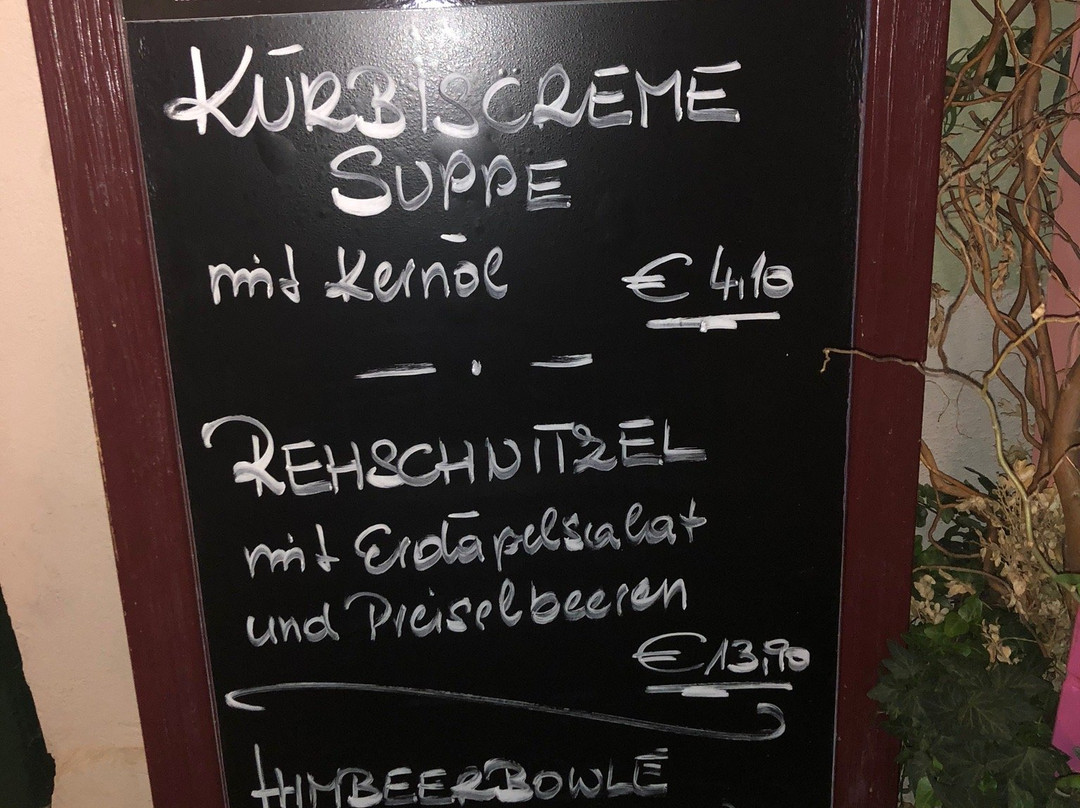 KÜRBISCREME
SUPPE
mit Kernöl € 4,10
REHSCHNITZEL
mit Erdäpfelsalat
und Preiselbeeren
€ 13,90
HIMBEERBOWLE